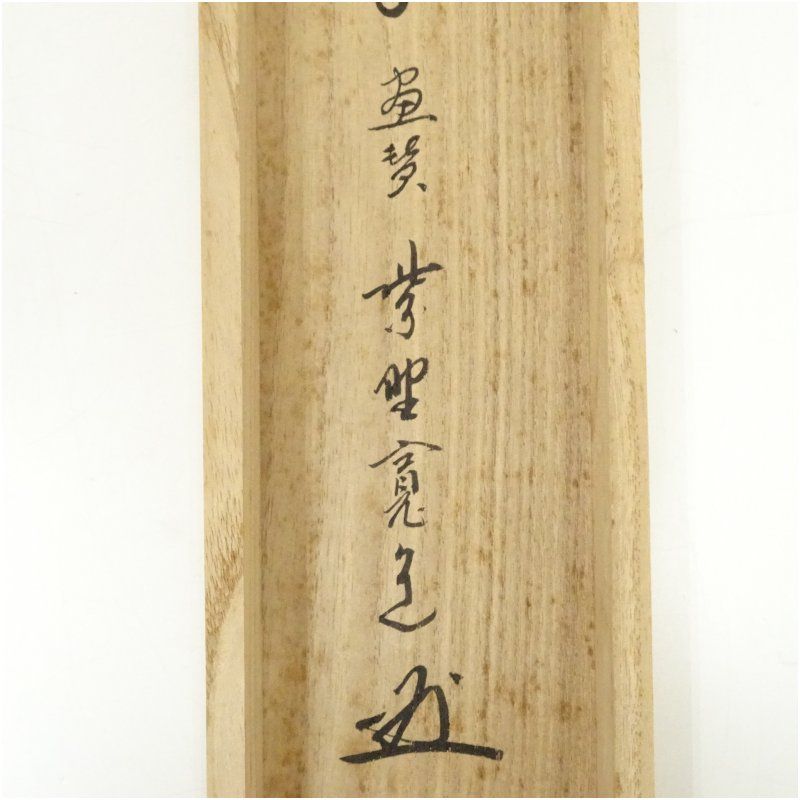 画賛 紫野寛道